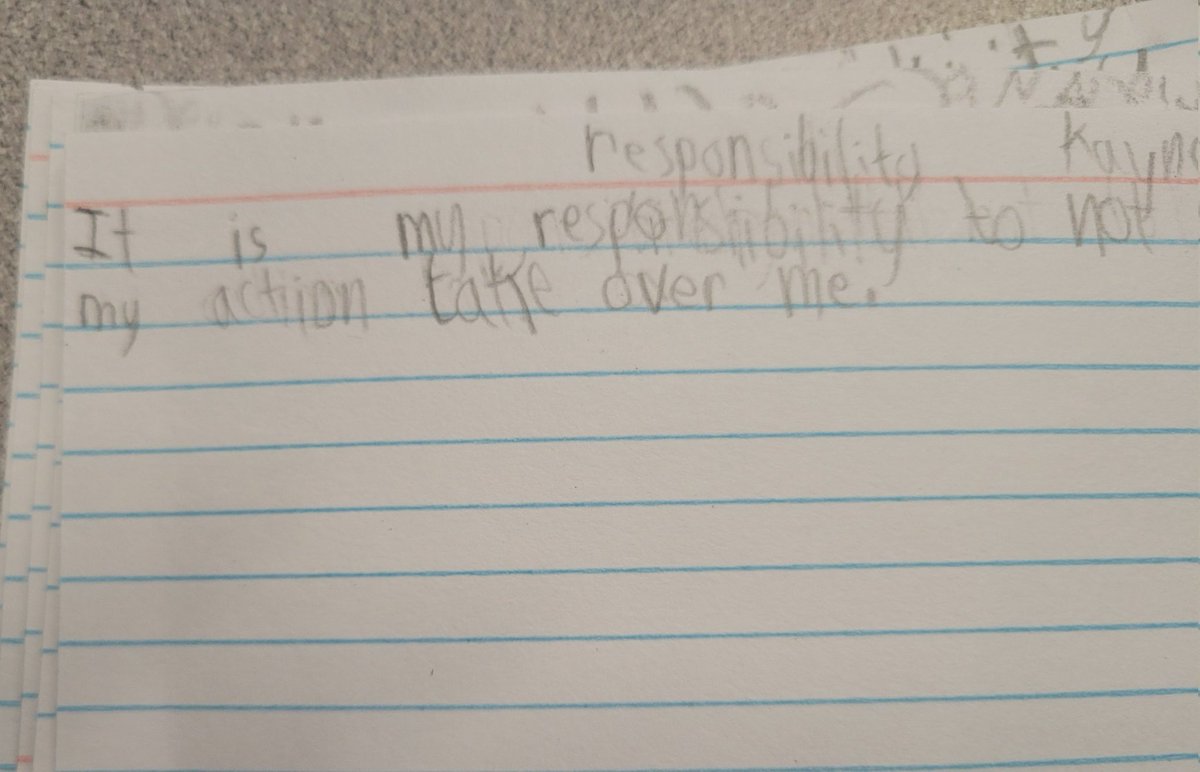 responsibility Kayn
It is my responsibility to not
my action take over me.